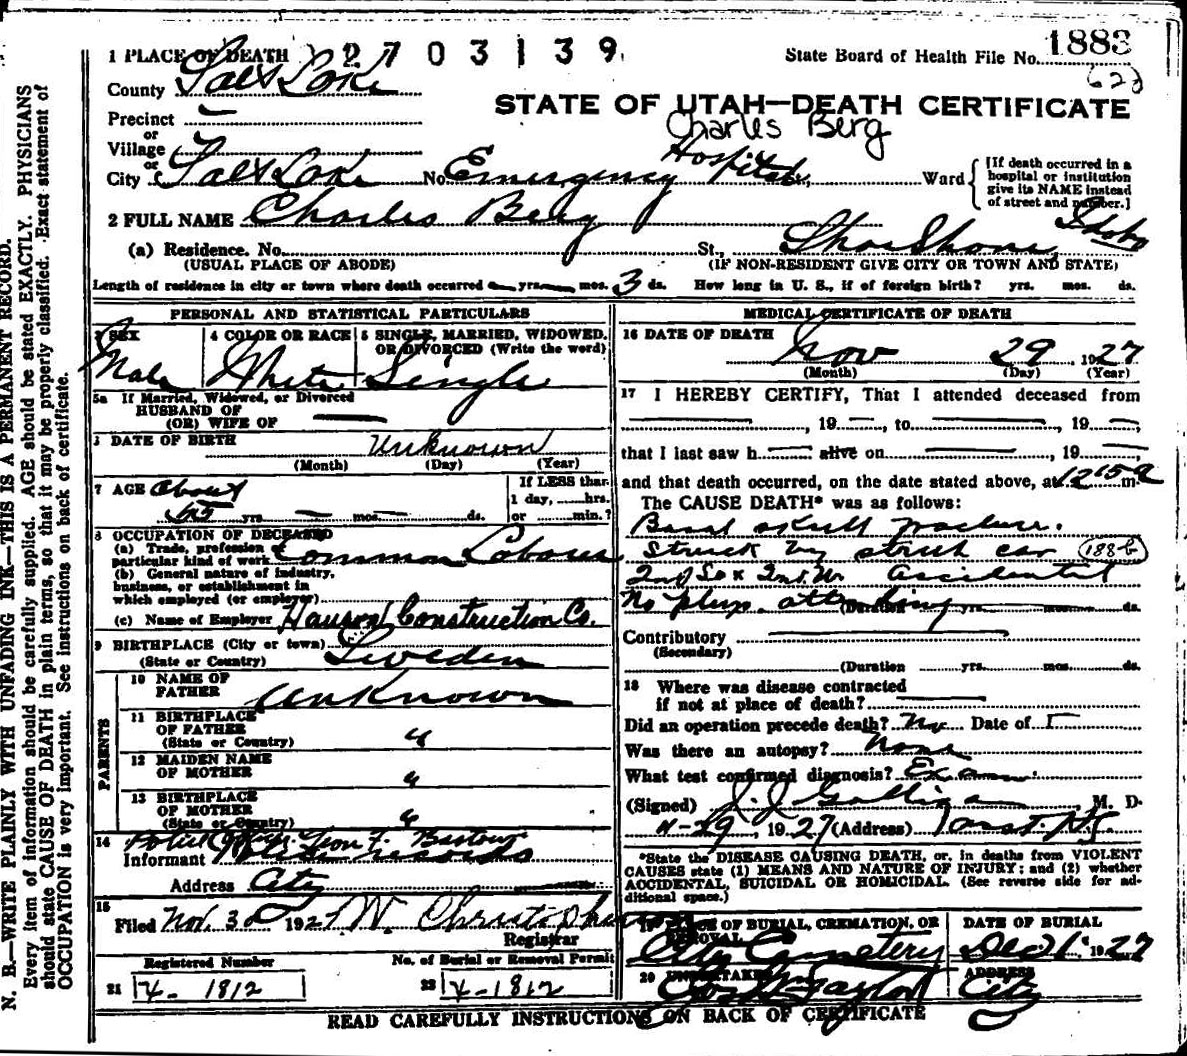 1 PLACE OF DEATH 2703139 State Board of Health File No. 1883
County Salt Lake 622
STATE OF UTAH—DEATH CERTIFICATE
Precinct
or
Village Charles Berg
or
City Salt Lake No. Emergency Hospital, Ward
[If death occurred in a
hospital or institution
give its NAME instead
of street and number.]
2 FULL NAME Charles Berg
(a) Residence. No. St., ShoeShone, Idaho
(USUAL PLACE OF ABODE) (IF NON-RESIDENT GIVE CITY OR TOWN AND STATE)
Length of residence in city or town where death occurred — yrs. — mos. 3 ds. How long in U. S., if of foreign birth? yrs. mos. ds.
PERSONAL AND STATISTICAL PARTICULARS
3 SEX 4 COLOR OR RACE 5 SINGLE, MARRIED, WIDOWED,
OR DIVORCED (Write the word)
Male White Single
5a If Married, Widowed, or Divorced
HUSBAND OF
(OR) WIFE OF
DATE OF BIRTH Unknown
(Month) (Day) (Year)
7 AGE About If LESS than
65 yrs. — mos. — ds. 1 day, hrs.
or min.?
8 OCCUPATION OF DECEASED
(a) Trade, profession
particular kind of work Common Laborer
(b) General nature of industry,
business, or establishment in
which employed (or employer)
(c) Name of Employer Construction Co.
9 BIRTHPLACE (City or town)
(State or Country) Sweden
PARENTS
10 NAME OF
FATHER Unknown
11 BIRTHPLACE
OF FATHER "
(State or Country)
12 MAIDEN NAME
OF MOTHER "
13 BIRTHPLACE
OF MOTHER "
(State or Country)
14 Leon F.
Informant
Address City
15
Filed Nov. 30 1927 W. Christopherson
Registrar
Registered Number No. of Burial or Removal Permit
21 X- 1812 22 X-1812
MEDICAL CERTIFICATE OF DEATH
16 DATE OF DEATH
Nov 29 1927
(Month) (Day) (Year)
17 I HEREBY CERTIFY, That I attended deceased from
, 19 —, to , 19 —,
that I last saw h alive on , 19
and that death occurred, on the date stated above, at 12 15 a m.
The CAUSE DEATH* was as follows:
Basal skull fracture.
Struck by street car 188b
2nd So x 2nd W. Accidental
No phys. attending
(Duration yrs. mos. ds.
Contributory
(Secondary)
(Duration yrs. mos. ds.
18 Where was disease contracted
if not at place of death?
Did an operation precede death? No Date of
Was there an autopsy? None
What test confirmed diagnosis? Exam.
(Signed) J. J. Galligan, M. D.
11-29, 1927 (Address)
*State the DISEASE CAUSING DEATH, or, in deaths from VIOLENT
CAUSES state (1) MEANS AND NATURE OF INJURY; and (2) whether
ACCIDENTAL, SUICIDAL OR HOMICIDAL. (See reverse side for ad-
ditional space.)
19 PLACE OF BURIAL, CREMATION, OR
REMOVAL DATE OF BURIAL
City Cemetery Dec 1 1927
20 UNDERTAKER ADDRESS
Jos. Wm Taylor City
READ CAREFULLY INSTRUCTIONS ON BACK OF CERTIFICATE
N. B.—WRITE PLAINLY WITH UNFADING INK—THIS IS A PERMANENT RECORD.
Every item of information should be carefully supplied. AGE should be stated EXACTLY. PHYSICIANS
should state CAUSE OF DEATH in plain terms, so that it may be properly classified. Exact statement of
OCCUPATION is very important. See instructions on back of certificate.